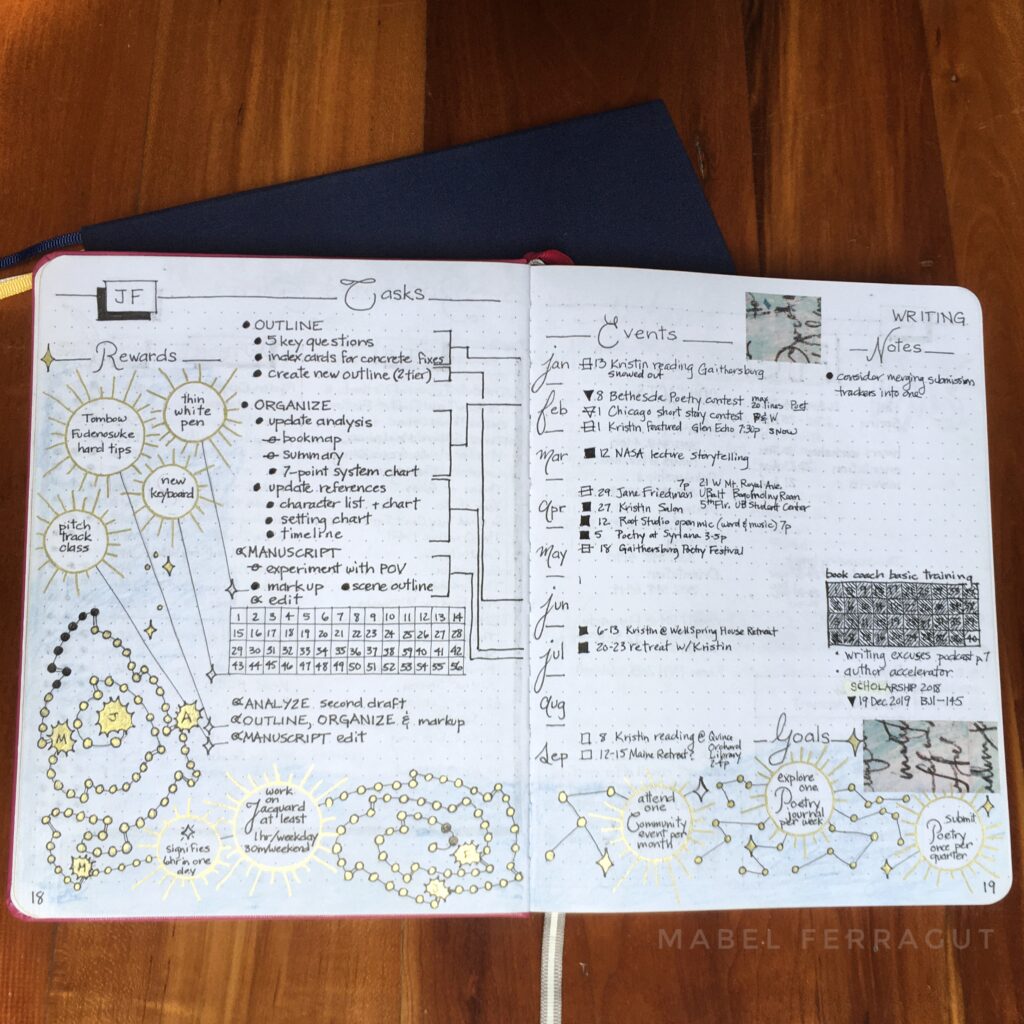 JF
Tasks
Rewards
Tombow
Fudenosuke
hard tips
thin
white
pen
new
keyboard
pitch
track
class
• OUTLINE
• 5 key questions
• index cards for concrete fixes
• create new outline (2 tier)
• ORGANIZE
• update analysis
bookmap
summary
• 7-point system chart
• update references
• character list + chart
• setting chart
• timeline
MANUSCRIPT
experiment with POV
• mark up • scene outline
edit
1 2 3 4 5 6 7 8 9 10 11 12 13 14
15 16 17 18 19 20 21 22 23 24 25 26 27 28
29 30 31 32 33 34 35 36 37 38 39 40 41 42
43 44 45 46 47 48 49 50 51 52 53 54 55 56
ANALYZE second draft
OUTLINE, ORGANIZE & markup
MANUSCRIPT edit
M
J
A
M
F
S
signifies
6hr in one
day
work
on
Jacquard
at least
1 hr/weekday
30m/weekend
18
WRITING
Events
jan
13 Kristin reading Gaithersburg
snowed out
feb
8 Bethesda Poetry contest max 20 lines Poet
1 Chicago short story contest P&W
1 Kristin Featured Glen Echo 7:30p snow
mar
12 NASA lecture storytelling
apr
7p 21 W Mt. Royal Ave.
29. Jane Friedman UBalt Bogomolny Room
27. Kristin Salon 5th Flr. UB Student Center
12. Root Studio open mic (word & music) 7p
5 Poetry at Syriana 3-5p
may
18 Gaithersburg Poetry Festival
jun
6-13 Kristin @ WellSpring House Retreat
jul
20-23 retreat w/Kristin
aug
sep
8 Kristin reading @ Quince
Orchard
Library
12-15 Maine Retreat?
Notes
• consider merging submission
trackers into one
book coach basic training
• writing excuses podcast p.7
• author accelerator
SCHOLARSHIP 2018
19 Dec 2019 BJ1-145
Goals
attend
one
Community
event per
month
explore
one
Poetry
journal
per week
submit
Poetry
once per
quarter
19
MABEL FERRAGUT